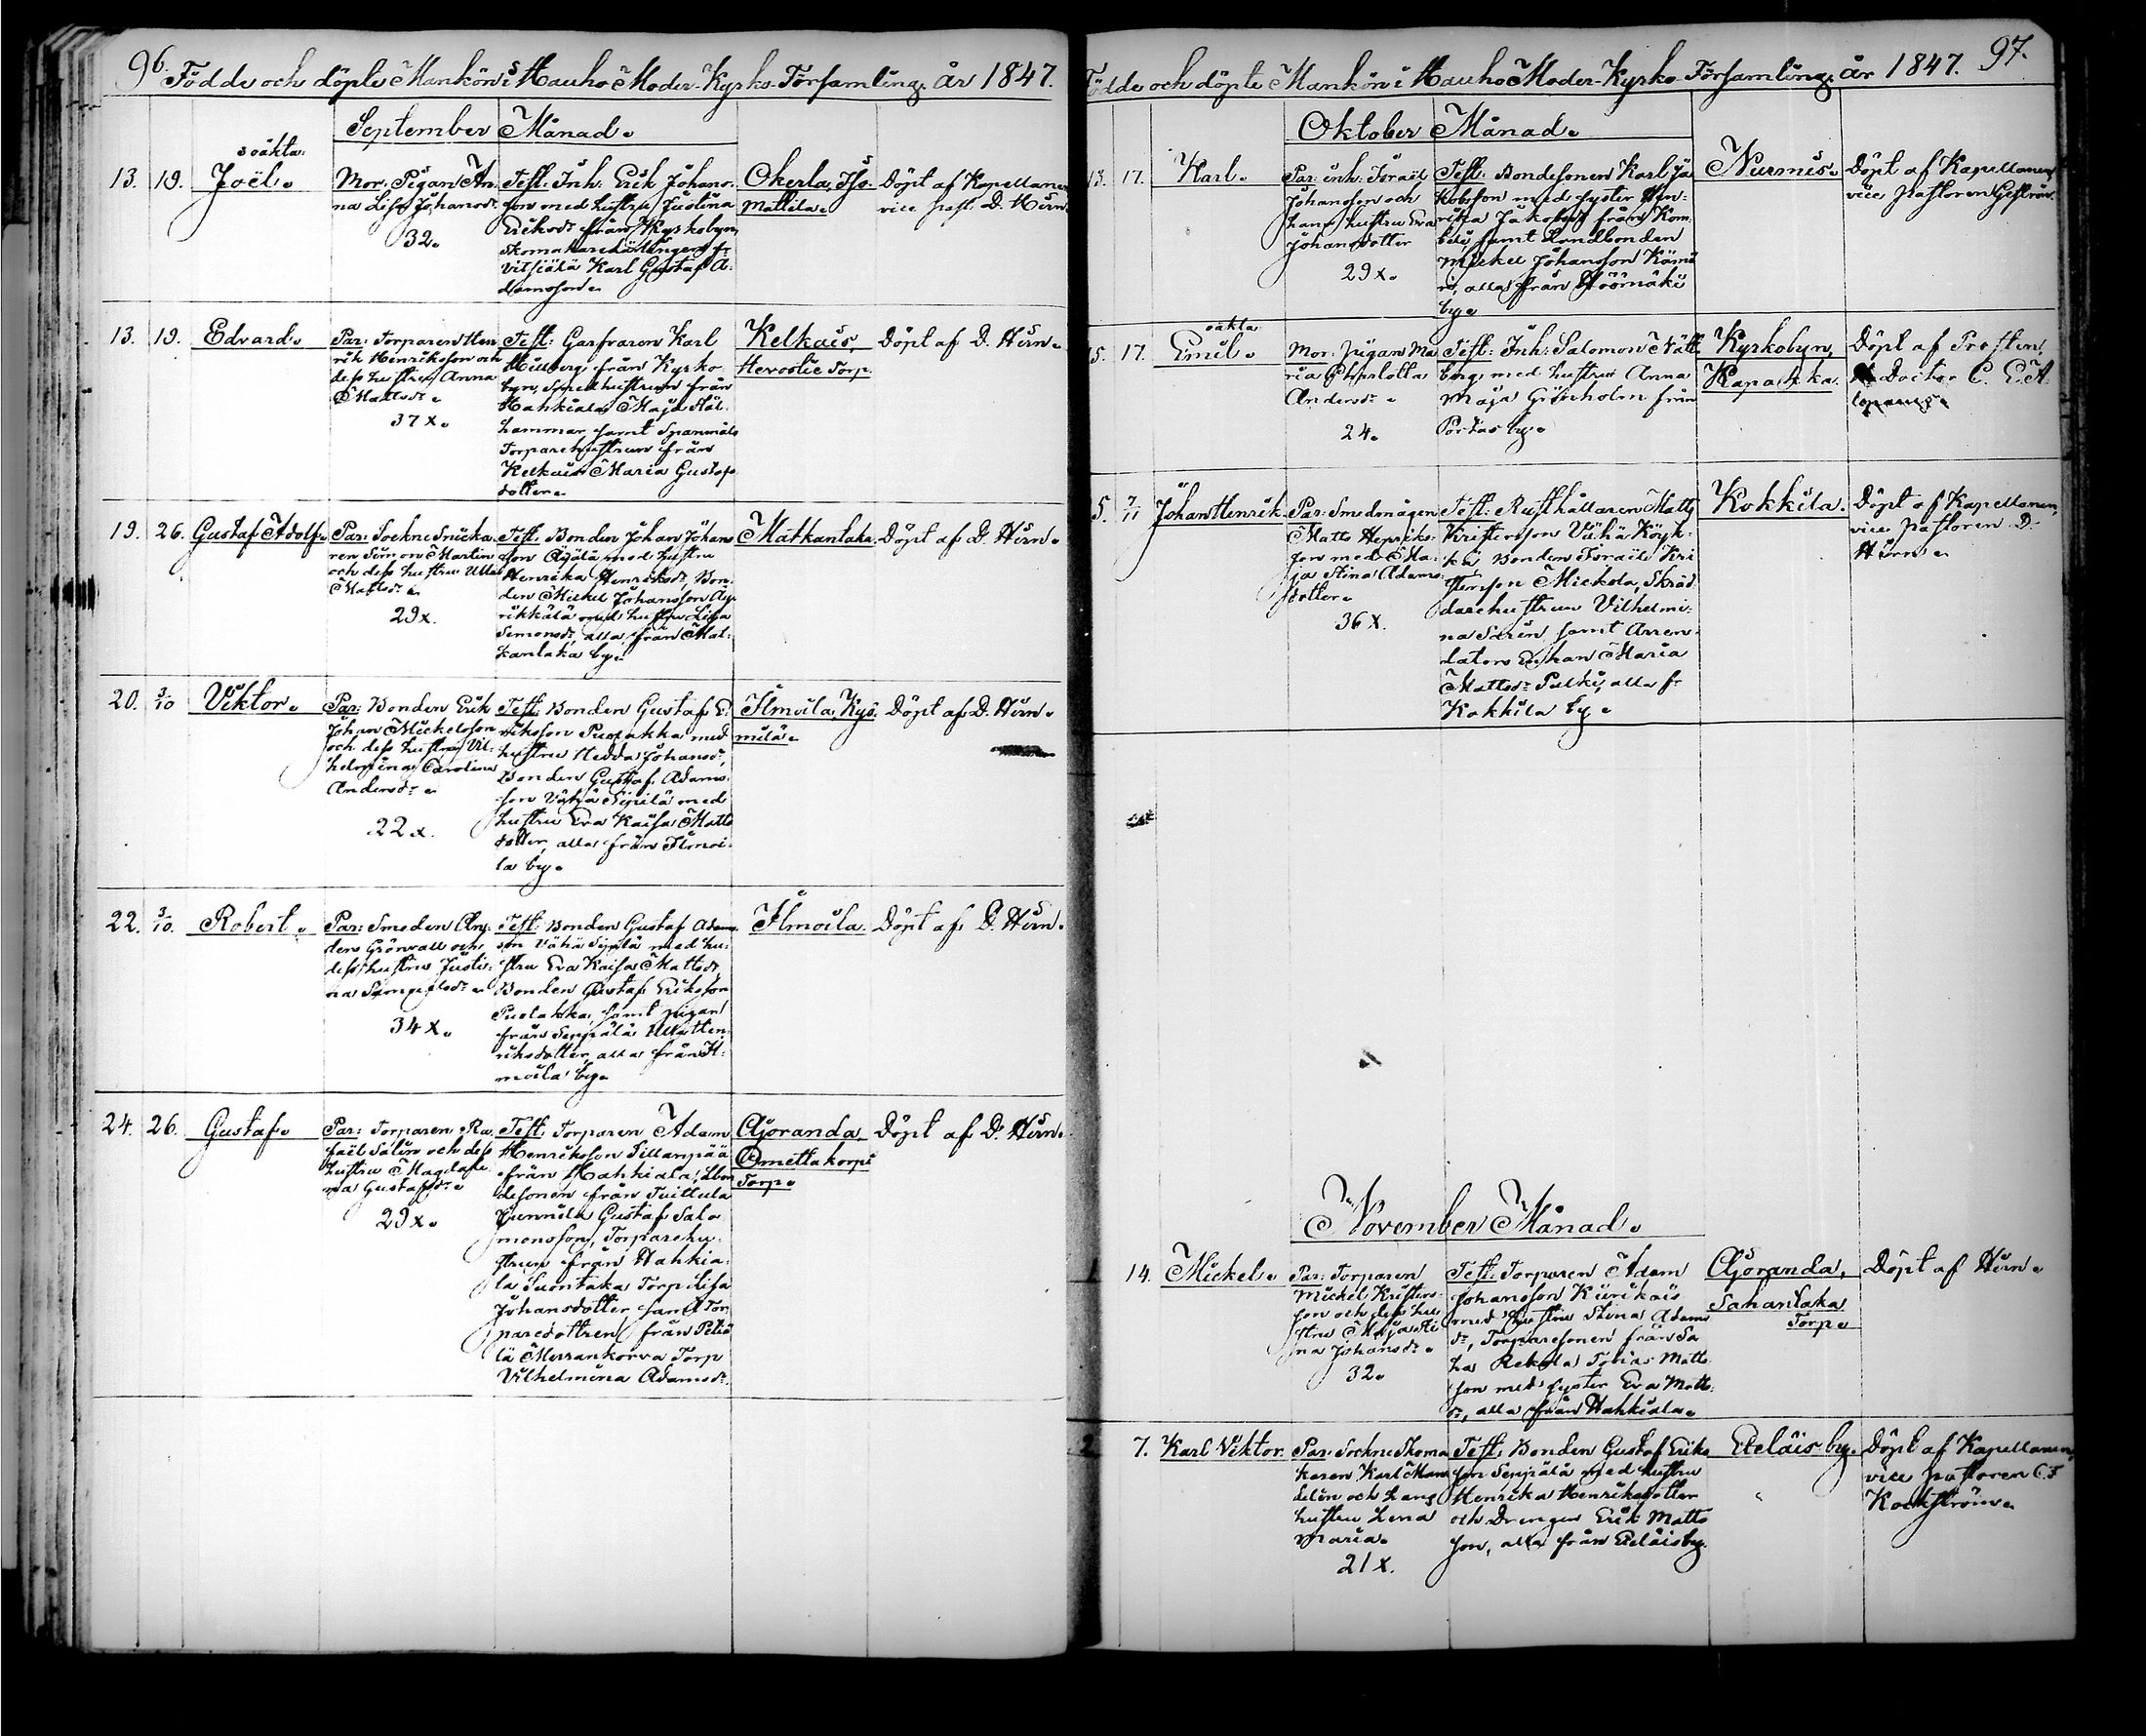 96.
Födde och döpte Mankön i Hauho Moder-Kyrko-Församling, år 1847.
September Månad.
oäkta
13. 19. Joël.
Mor: Pigan An-
na Lisa Johansdr
32.
Test: Inh: Erik Johans-
son med hustru Justina
Eriksdr från Kyrkobyn,
Skomakare
Vitsiälä Karl Gustaf A-
damsson.
Okerla, Iso-
Mattila.
Döpt af Kapellanen
vice past. D. Hirn.
13. 19. Edvard.
Par: Torparen Hen
rik Henriksson och
dess hustru Anna
Mattsdr.
37 x.
Test: Garfvaren Karl
från Kyrko
byn, hustrun från
Hahkiala Maja Stål-
hammar samt Spanmåls
Torparehustrun från
Kelkais Maria Gustafs
dotter.
Kelkais,
Torp.
Döpt af D. Hirn.
19. 26. Gustaf Adolf.
Par: Sockne Snicka-
ren Simon Martin
och dess hustru Ulla
Mattsdr.
29 x.
Test: Bonden Johan Johans
son Äijälä med hustru
Henrika Henriksdr, Bon-
den Mickel Johansson Äy-
rikkälä med hustru Lisa
Simonsdr, alla från Mat-
kanlaka by.
Matkanlaka.
Döpt af D. Hirn.
20. 3/10 Viktor.
Par: Bonden Erik
Johan Mickelsson
och dess hustru Vil-
helmina Carolina
Andersdr.
22 x.
Test: Bonden Gustaf E-
riksson Puolakka med
hustru Hedda Johansdr,
Bonden Gustaf Adams-
son Vähä Sipilä med
hustru Eva Kaisa Matts
dotter, alla från Ilmoi-
la by.
Ilmoila, Kys-
milä.
Döpt af D. Hirn.
22. 3/10. Robert.
Par: Smeden An-
ders Grönvall och
dess hustru Justi-
na Samuelsdr.
34 x.
Test: Bonden Gustaf Adams-
son Vähä Sipilä med hu-
stru Eva Kaisa Mattsdr,
Bonden Gustaf Eriksson
Puolakka, samt pigan
från Seppälä Ulla Hen-
riksdotter, alla från Il-
moila by.
Ilmoila.
Döpt af D. Hirn.
24. 26. Gustaf.
Par: Torparen Ra
faël Salin och dess
hustru Magdale
na Gustafsdr.
29 x.
Test: Torparen Adam
Henriksson Sillanpää
från Hahkiala, Bon
desonen från Tuittula
Junnila Gustaf Salo
monsson, Torparehu-
strun från Hahkia-
la Suontaka Torp Lisa
Johansdotter samt Tor
paredottren från
Torp
Vilhelmina Adamsdr.
Ajoranda
Omettakorpi
Torp.
Döpt af D. Hirn.
97.
Födde och döpte Mankön i Hauho Moder-Kyrko Församling, år 1847.
Oktober Månad.
13. 17. Karl.
Par: inh: Israil
Johansson och
hans hustru Eva
Johansdotter
29 x.
Test: Bondesonen Karl Ja
kobsson med syster Hen-
rika Jakobsdr från
samt Landbonden
Mickel Johansson
alla från
by.
Nurmis.
Döpt af Kapellanen,
vice pastoren
oäkta
15. 17. Emil.
Mor: pigan Ma
ria Charlotta
Andersdr.
24.
Test: Inh: Salomon Nätt
berg med hustru Anna
Maja Grönholm från
Portas by.
Kyrkobyn,
Kapakka.
Döpt af Prosten,
Doctor C. E. A-
15. 7/11 Johan Henrik.
Par: Smedmågen
Matts Henriks-
son med Ma-
ja Stina Adams
dotter.
36 x.
Test: Rusthållaren Matts
Kristersson Vähä Köyk-
kä, Bonden Israil Kri
stersson Mickola, Skräd
darehustrun Vilhelmi-
na Serin samt Arren-
dators Enkan Maria
Mattsdr Palki, alla fr
Kokkila by.
Kokkila.
Döpt af Kapellanen,
vice pastoren D.
Hirn.
November Månad.
1. 14. Mickel.
Par: Torparen
Mickel Kristers-
son och dess hu
stru Maja Sti
na Johansdr.
32.
Test: Torparen Adam
Johansson Kiirikais
med hustru Stina Adams
dr, Torparesonen från Sa
ha Rekola Tobias Matts
son med syster Eva Matts-
dr, alla från Hahkiala.
Ajoranda,
Sahanlaka
Torp.
Döpt af Hirn.
2. 7. Karl Viktor.
Par: Sockne Skoma
karen Karl Man
delin och hans
hustru Lena
Maria.
21 x.
Test: Bonden Gustaf Eriks
son Seppälä med hustru
Henrika Henriksdotter
och Drengen Erik Matts
son, alla från Eteläis by.
Eteläis by.
Döpt af Kapellanen,
vice pastoren C. F
Kockström.